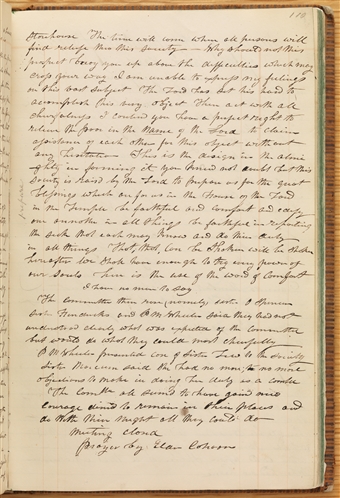 Storehouse The time will come when all persons will
find refuge in this society — Why should not this
prospect buoy you up above the difficulties which may
cross your way I am unable to express my feelings
in this vast subject The Lord has set his hand to
accomplish this very object Then act with all
cheerfulness I contend you have a perfect right to
relieve the poor in the Name of the Lord to claim
assistance of each other for this object without
any hesitation This is the design in the almi
ghty in forming it you need not doubt but this
Society is raised by the Lord to prepare us for the great
blessings which are for us in the House of the Lord
in the Temple be faithful and comfort and edify
one another in all things be faithful in reporting
the sick that each may know and do their duty
in all things That, that, can be shaken will be shaken
hereafter We shall have enough to try every power of
our souls Then is the use of the word of comfort
I have no more to say
The committee then rose (namely) sister
Sister Hendricks and P.M. Wheeler said they had not
understood clearly what was expected of the committee
but would do what they could most cheerfully
P.M. Wheeler presented one of Sister to the Society
Sister said She had no more no more
objections to make in doing her duty as a comtee
The Comtt all seemed to have gained new
courage desired to remain in their places and
do with their might all they could do
Meeting closed
prayer by Elder Cahoon